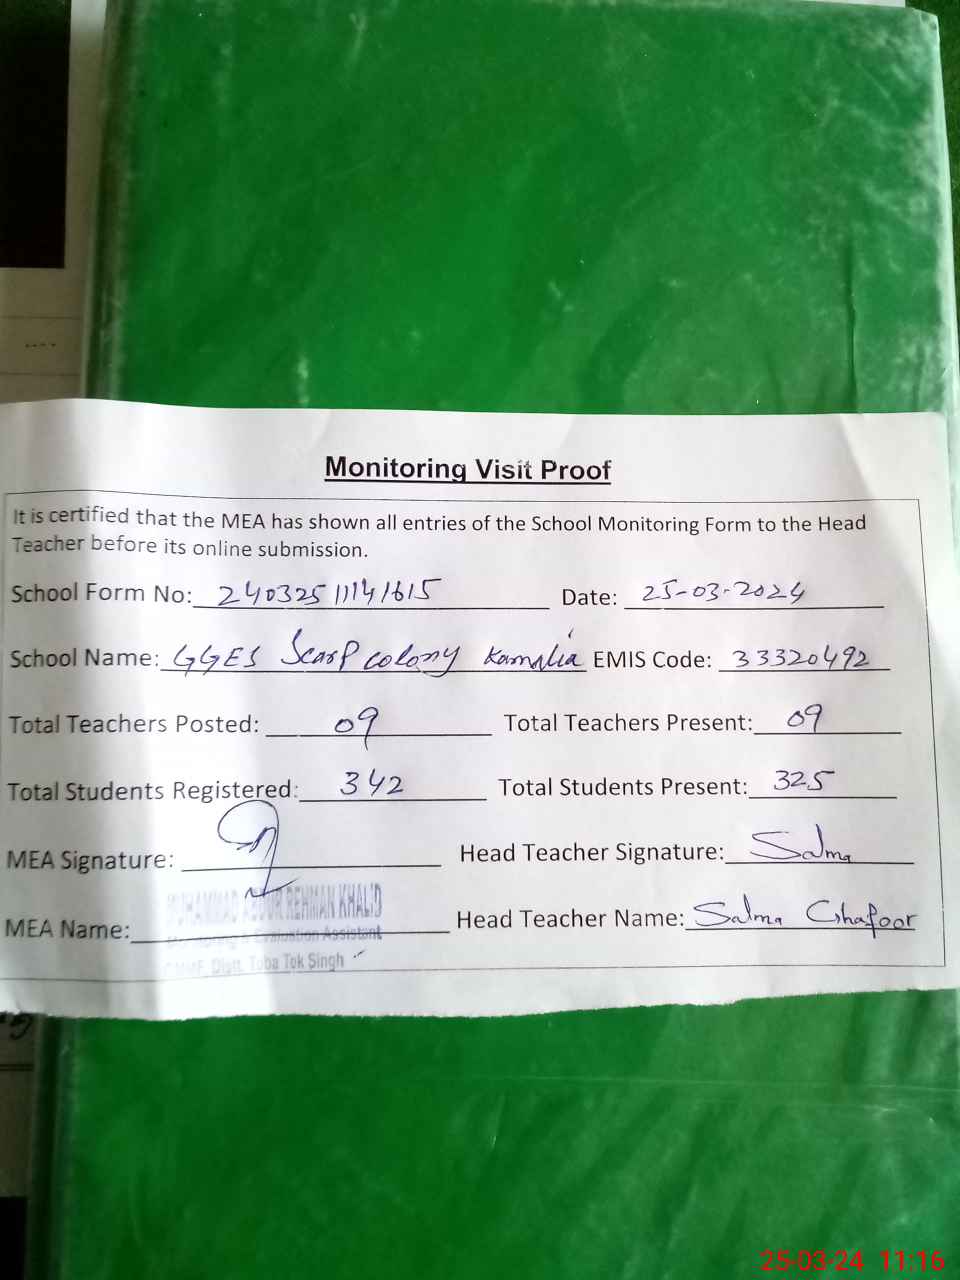 Monitoring Visit Proof
It is certified that the MEA has shown all entries of the School Monitoring Form to the Head
Teacher before its online submission.
School Form No: 24032511141615 Date: 25-03-2024
School Name: GGES Scarp colony Kamalia EMIS Code: 33320492
Total Teachers Posted: 09 Total Teachers Present: 09
Total Students Registered: 342 Total Students Present: 325
MEA Signature: Head Teacher Signature: Salma
MUHAMMAD ABDUR REHMAN KHALID
MEA Name: Head Teacher Name: Salma Ghafoor
Monitoring & Evaluation Assistant
Distt. Toba Tek Singh
25-03-24 11:16